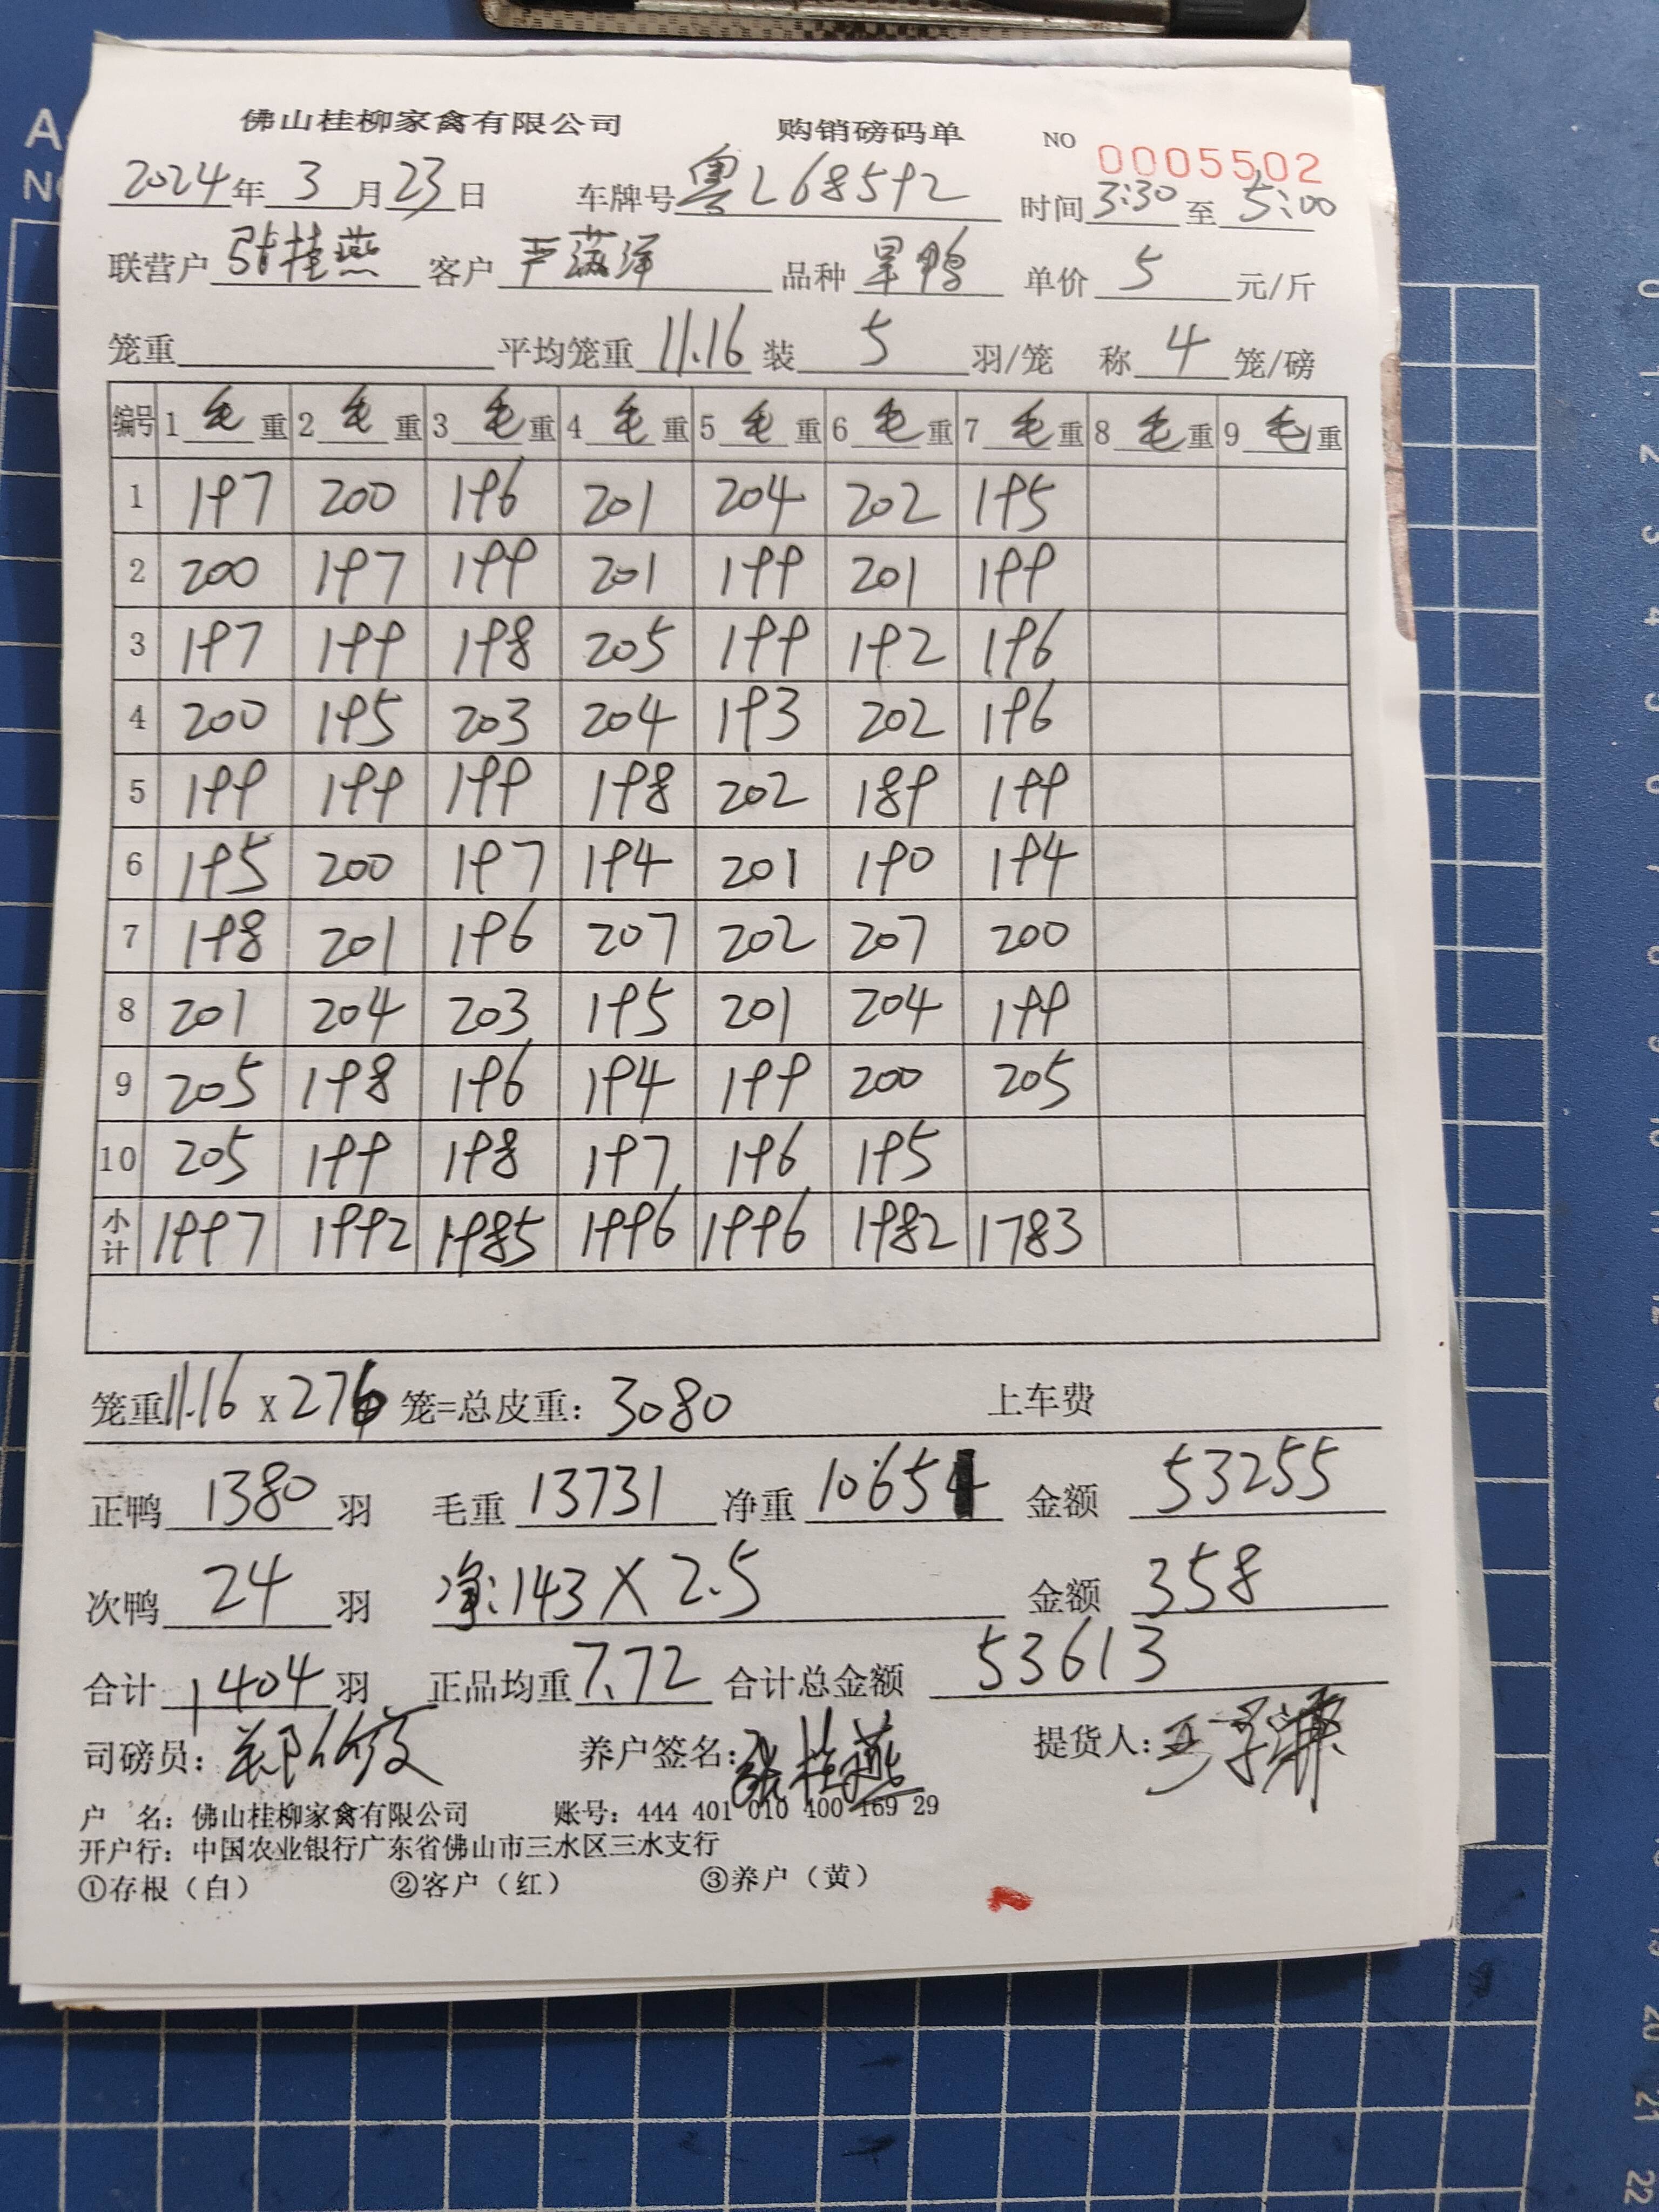 佛山桂柳家禽有限公司 购销磅码单 NO 0005502
2024年 3 月 23 日 车牌号 粤L68592 时间 3:30 至 5:00
联营户 张桂燕 客户 品种 旱鸭 单价 5 元/斤
笼重 平均笼重 11.16 装 5 羽/笼 称 4 笼/磅
编号 1 毛 重 2 毛 重 3 毛 重 4 毛 重 5 毛 重 6 毛 重 7 毛 重 8 毛 重 9 毛 重
1 197 200 196 201 204 202 195
2 200 197 199 201 199 201 199
3 197 199 198 205 199 192 196
4 200 195 203 204 193 202 196
5 199 199 199 198 202 189 199
6 195 200 197 194 201 190 194
7 198 201 196 207 202 207 200
8 201 204 203 195 201 204 199
9 205 198 196 194 199 200 205
10 205 199 198 197 196 195
小计 1997 1992 1985 1996 1996 1982 1783
笼重 11.16 x 276 笼=总皮重: 3080 上车费
正鸭 1380 羽 毛重 13731 净重 10651 金额 53255
次鸭 24 羽 净:143×2.5 金额 358
合计 1404 羽 正品均重 7.72 合计总金额 53613
司磅员: 养户签名: 张桂燕 提货人:
户 名: 佛山桂柳家禽有限公司 账号: 444 401 010 400 169 29
开户行: 中国农业银行广东省佛山市三水区三水支行
①存根（白） ②客户（红） ③养户（黄）
A
0
1
2
3
4
5
6
7
8
9
10
11
12
20
21
22